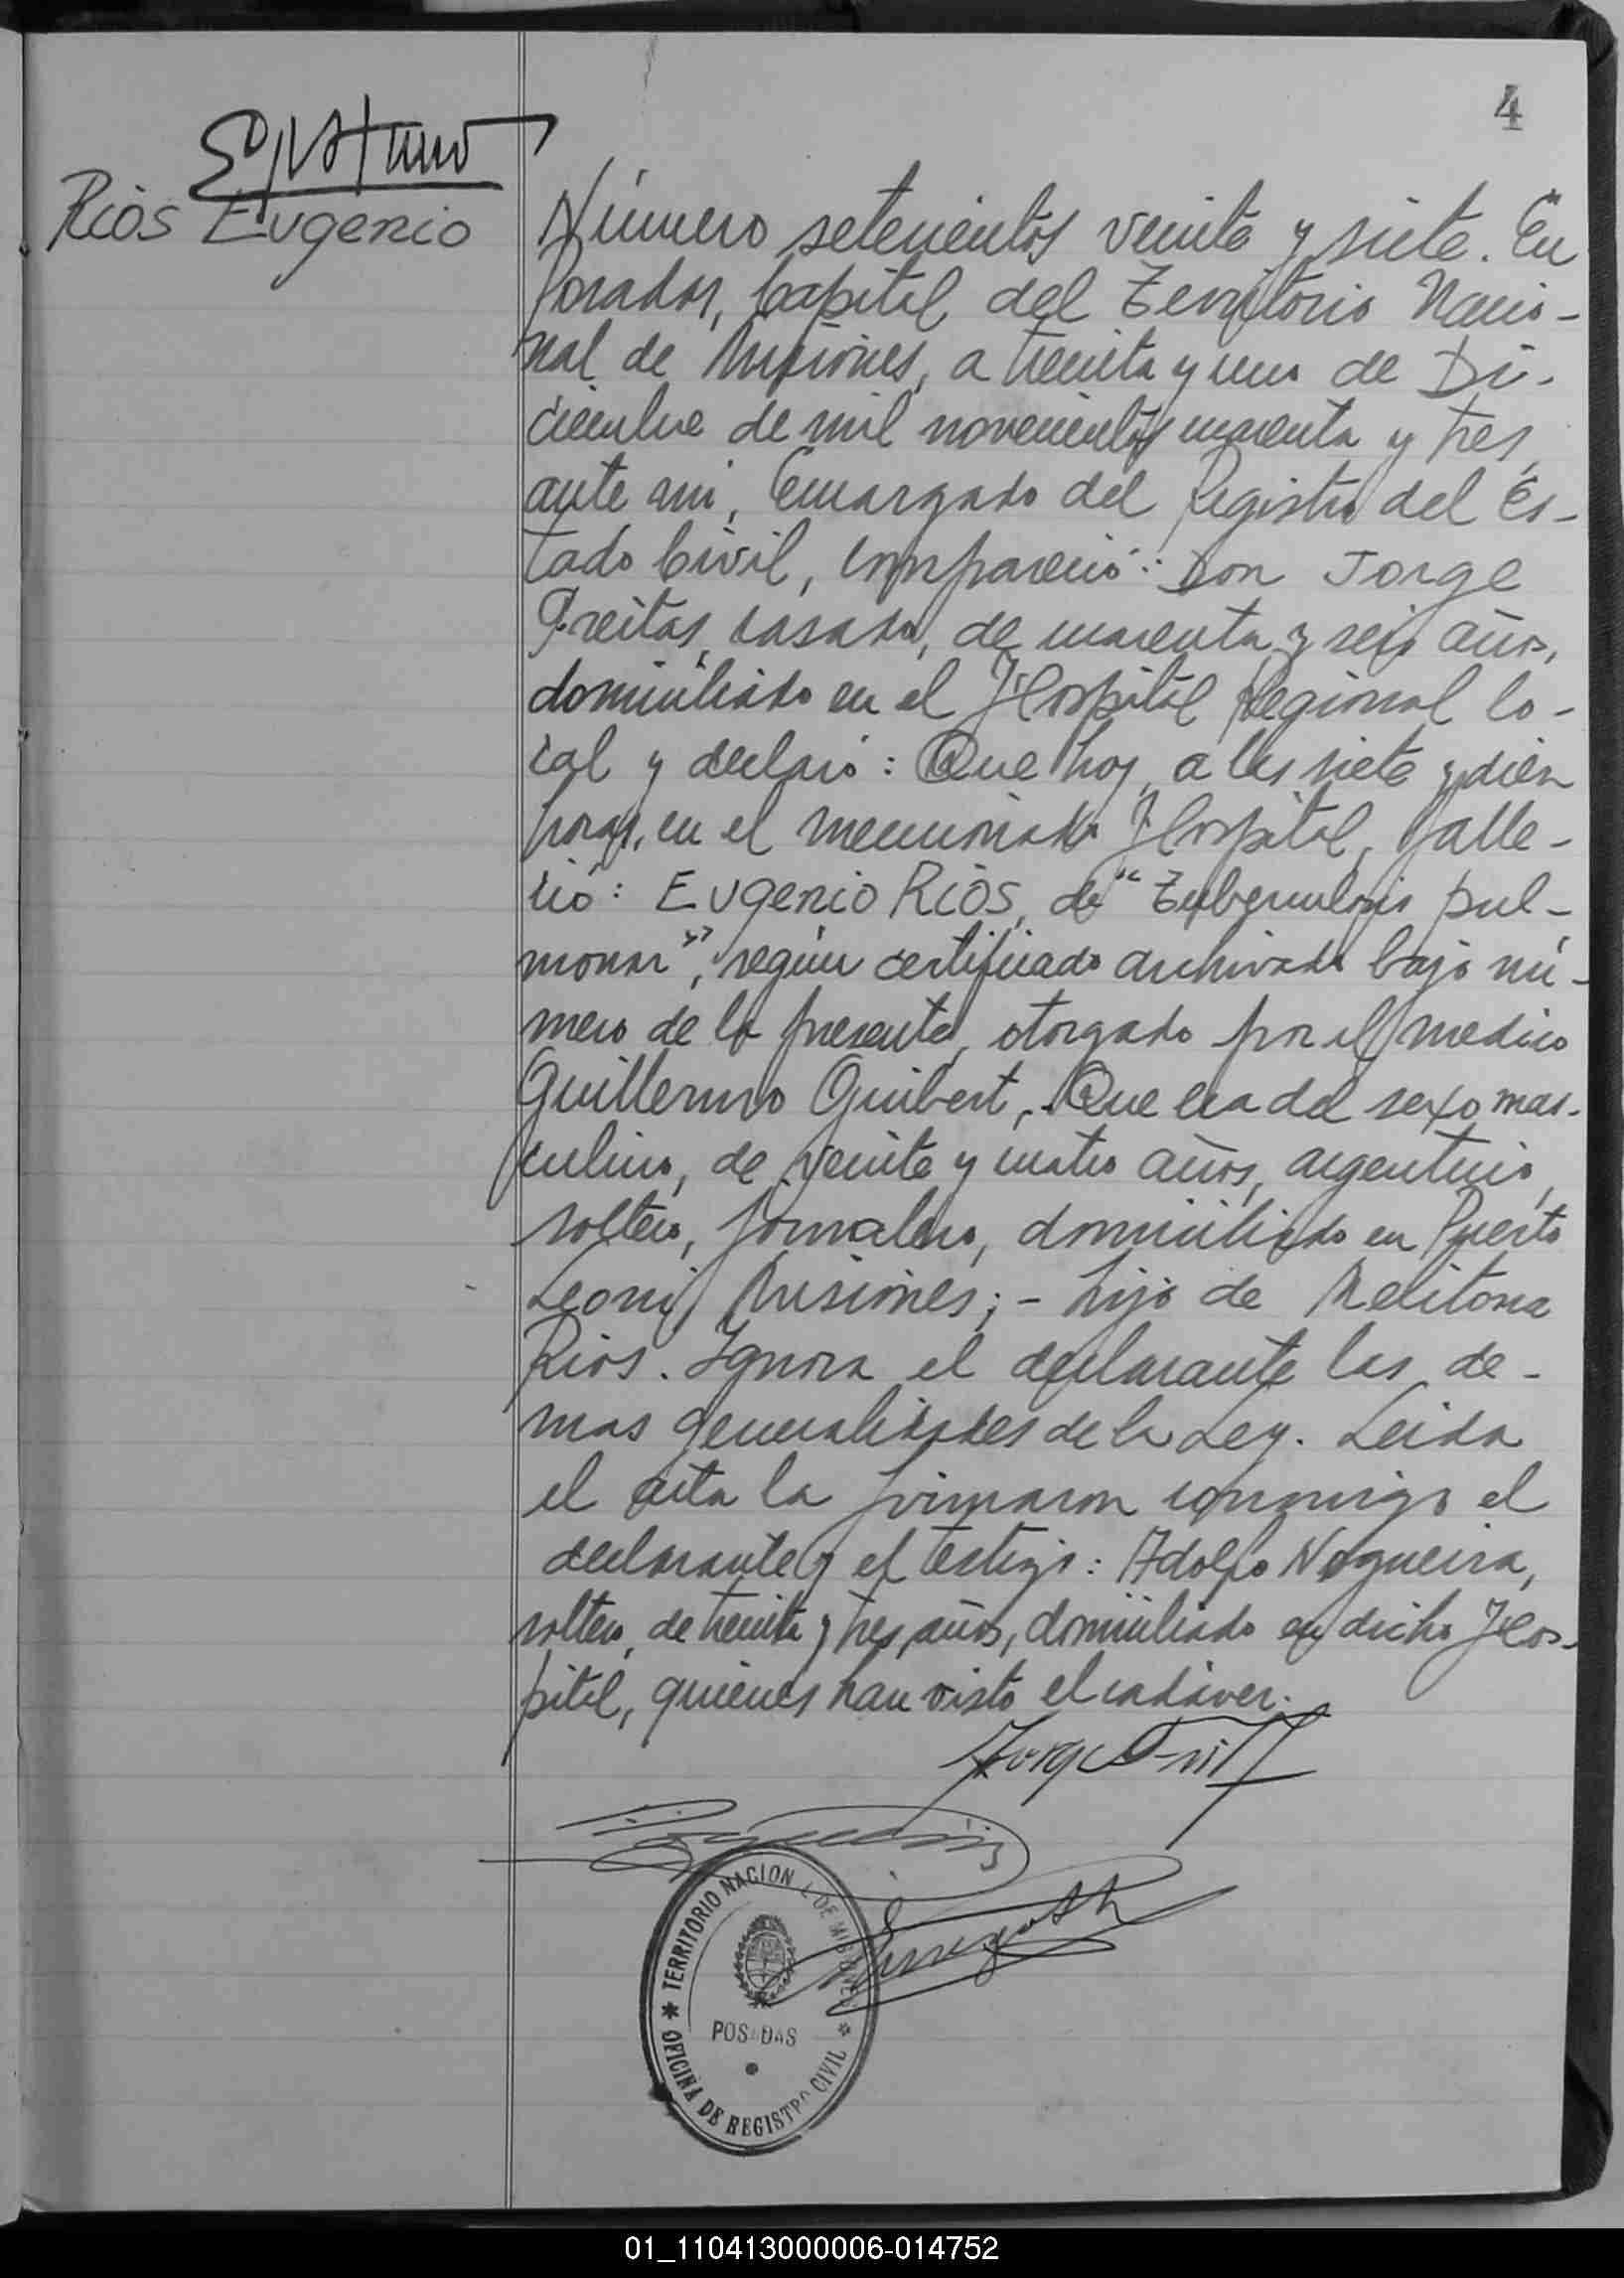 4
Rios Eugenio
Número setecientos veinte y siete. En
Posadas, Capital del Territorio Nacio-
nal de Misiones, a treinta y uno de Di-
ciembre de mil novecientos cuarenta y tres,
ante mi, Encargado del Registro del Es-
tado Civil, compareció: Don Jorge
Freitas, casado, de cuarenta y seis años,
domiciliado en el Hospital Regional lo-
cal y declaró: Que hoy, a las siete y diez
horas, en el mencionado Hospital, falle-
ció: Eugenio Rios, de "Tuberculosis pul-
monar", según certificado archivado bajo nú-
mero de la presente, otorgado por el medico
Guillermo Guibert, Que era del sexo mas-
culino, de veinte y cuatro años, argentino,
soltero, jornalero, domiciliado en Puerto
Leoni, Misiones; - hijo de Melitona
Rios. Ignora el declarante las de-
mas generalidades de la Ley. Leida
el acta la firmaron conmigo el
declarante y el testigo: Adolfo Nogueira,
soltero, de treinta y tres años, domiciliado en dicho Hos-
pital, quienes han visto el cadáver.
TERRITORIO NACIONAL DE MISIONES
POSADAS
OFICINA DE REGISTRO CIVIL
01_110413000006-014752